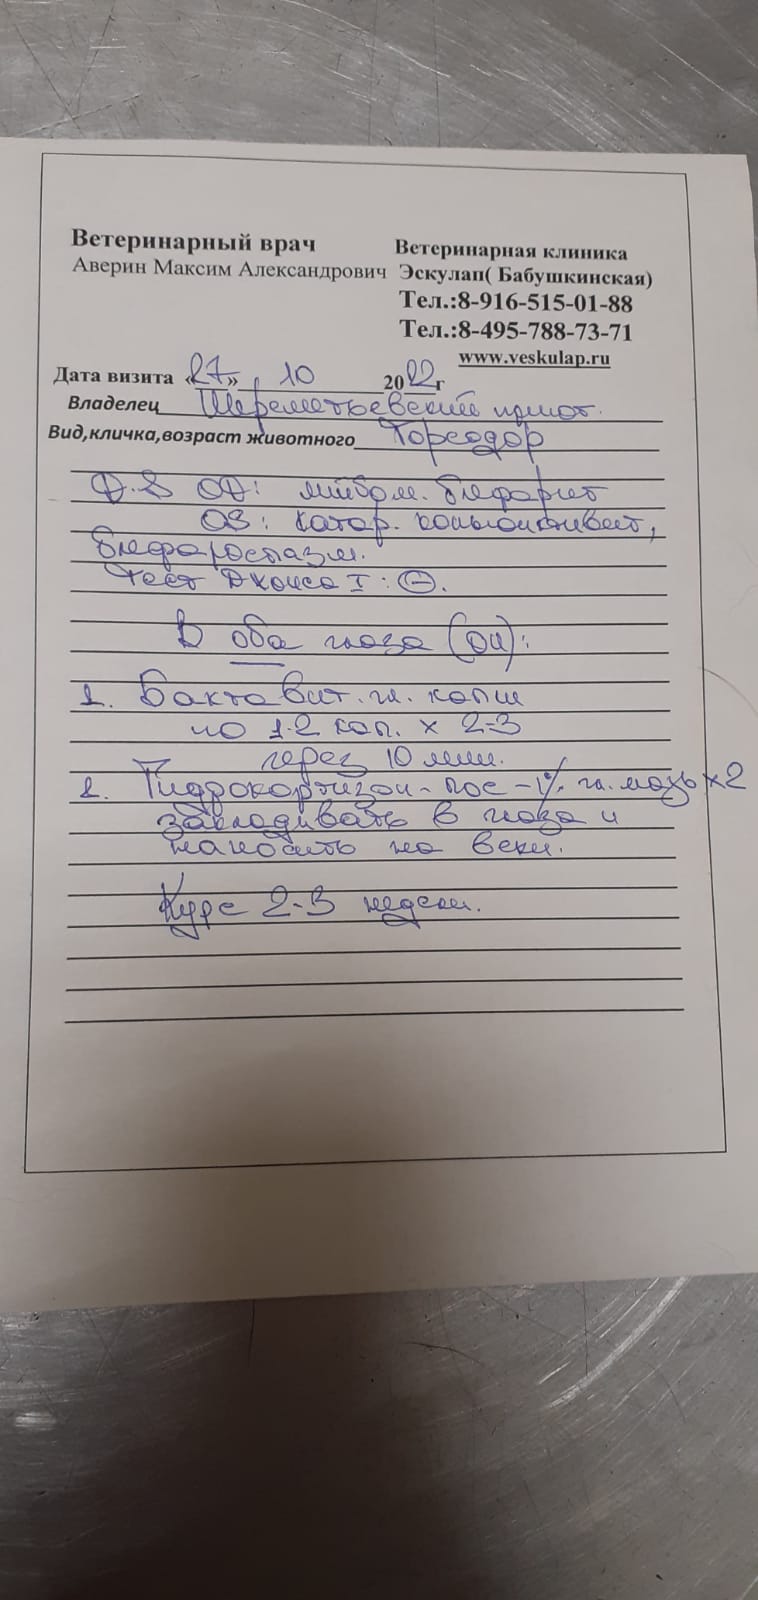 Ветеринарный врач
Аверин Максим Александрович
Ветеринарная клиника
Эскулап( Бабушкинская)
Тел.:8-916-515-01-88
Тел.:8-495-788-73-71
www.veskulap.ru
Дата визита «27» 10 2022г
Владелец Шереметьевский приют.
Вид,кличка,возраст животного Тореодор
D.S OD: мейбом. блефарит
OS: катар. коньюнктивит,
блефароспазм.
Тест Джонса I: ⊖.
В оба глаза (OU):
1. Бактавит. гл. капли
по 1-2 кап. х 2-3
через 10 мин.
2. Гидрокортизон-пос-1% гл. мазь х2
закладывать в глаза и
наносить на веки.
Курс 2-3 недели.